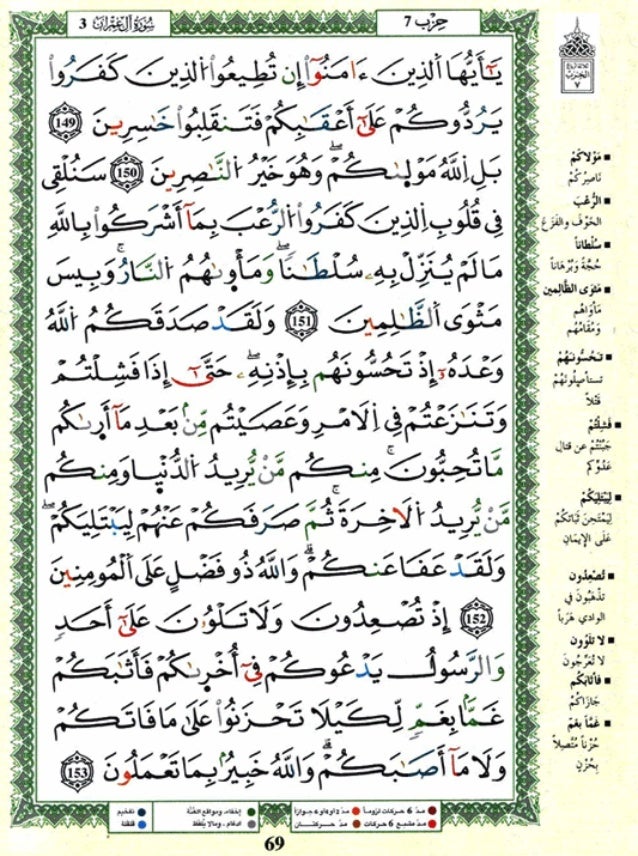 حِزْب 7
سُورَةُ آلِ عِمْرَان 3
يَٰٓأَيُّهَا اَ۬لذِينَ ءَامَنُوٓاْ إِن تُطِيعُواْ اُ۬لذِينَ كَفَرُواْ
يَرُدُّوكُمْ عَلَىٰٓ أَعْقَٰبِكُمْ فَتَنقَلِبُواْ خَٰسِرِينَ 149
بَلِ اِ۬للَّهُ مَوْلٜىٰكُمْۖ وَهُوَ خَيْرُ اُ۬لنَّٰصِرِينَ 150 سَنُلْقِى
فِى قُلُوبِ اِ۬لذِينَ كَفَرُواْ اُ۬لرُّعْبَ بِمَآ أَشْرَكُواْ بِاللَّهِ
مَا لَمْ يُنَزِّلْ بِهِۦ سُلْطَٰناٗۖ وَمَأْوٜىٰهُمُ اُ۬لنَّارُۚ وَبِيسَ
مَثْوَى اَ۬لظَّٰلِمِينَ 151 وَلَقَدْ صَدَقَكُمُ اُ۬للَّهُ
وَعْدَهُۥٓ إِذْ تَحُسُّونَهُم بِإِذْنِهِۦۖ حَتَّىٰٓ إِذَا فَشِلْتُمْ
وَتَنَٰزَعْتُمْ فِى اِ۬لَامْرِ وَعَصَيْتُم مِّنۢ بَعْدِ مَآ أَرٜىٰكُم
مَّا تُحِبُّونَۚ مِنكُم مَّنْ يُّرِيدُ اُ۬لدُّنْيٜا وَمِنكُم
مَّنْ يُّرِيدُ اُ۬لَاخِرَةَۚ ثُمَّ صَرَفَكُمْ عَنْهُمْ لِيَبْتَلِيَكُمْۖ
وَلَقَدْ عَفَا عَنكُمْۗ وَاللَّهُ ذُو فَضْلٍ عَلَى اَ۬لْمُومِنِينَ
152 إِذْ تُصْعِدُونَ وَلَا تَلْوُۥنَ عَلَىٰٓ أَحَدٖ
وَالرَّسُولُ يَدْعُوكُمْ فِىٓ أُخْرٜىٰكُمْ فَأَثَٰبَكُمْ
غَمَّۢا بِغَمّٖ لِّكَيْلَا تَحْزَنُواْ عَلَىٰ مَا فَاتَكُمْ
وَلَا مَآ أَصَٰبَكُمْۗ وَاللَّهُ خَبِيرُۢ بِمَا تَعْمَلُونَ 153
■ مَوْلاَكُمْ
نَاصِرُكُمْ
■ الرُّعْبَ
الخَوْفَ والفَزَعَ
■ سُلْطَاناً
حُجَّةً وَبُرْهَاناً
■ مَثْوَى الظَّالِمِين
مَأْوَاهُم
وَمُقَامُهُم
■ تَحُسُّونَهُم
تَستأصِلُونَهُمْ
قَتْلاً
■ فَشِلْتُمْ
جَبُنْتُمْ عن قتالِ
عَدُوِّكم
■ لِيَبْتَلِيَكُمْ
لِيَمْتَحِنَ ثَبَاتَكُمْ
عَلَى الإيمَانِ
■ تُصْعِدُون
تَذْهَبُونَ فِي
الوادي هَرَباً
■ لا تَلْوُون
لا تُعَرِّجُونَ
■ فأثابَكُم
جَازَاكُمْ
■ غَمّاً بغَمّ
حُزْناً مُتَّصِلاً
بِحُزْنٍ
مدّ 6 حركات لزوماً
مدّ 2 أو 4 أو 6 جوازاً
إخفاء، ومواقع الغُنَّة
تفخيم
مدّ مشبع 6 حركات
مدّ حركتان
ادغام، ومالا يُلفَظ
قلقلة
69